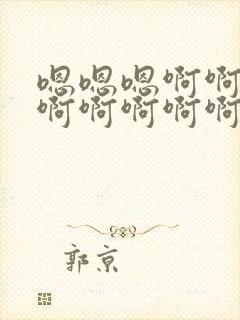 嗯嗯嗯啊啊
啊啊啊啊啊
郭京